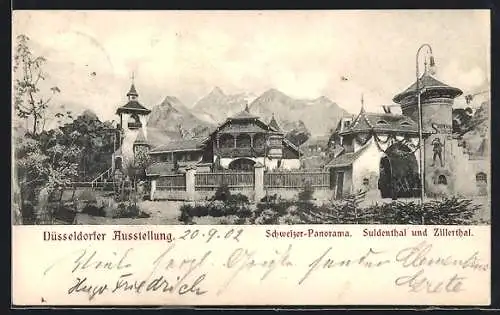 Düsseldorfer Ausstellung. 20.9.02 Schweizer-Panorama. Suldenthal und Zillerthal.
Viele herzl. Grüße senden Clementine
Hugo Friedrich Grete